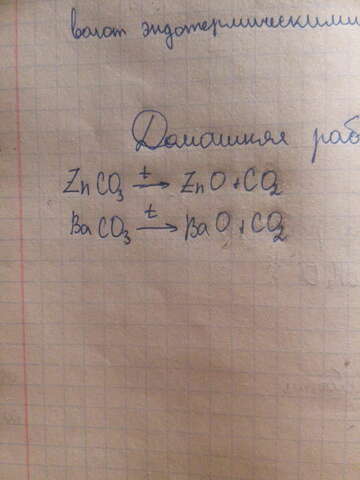 вают эндотермическими
Домашняя раб
ZnCO₃ —t→ ZnO + CO₂
BaCO₃ —t→ BaO + CO₂